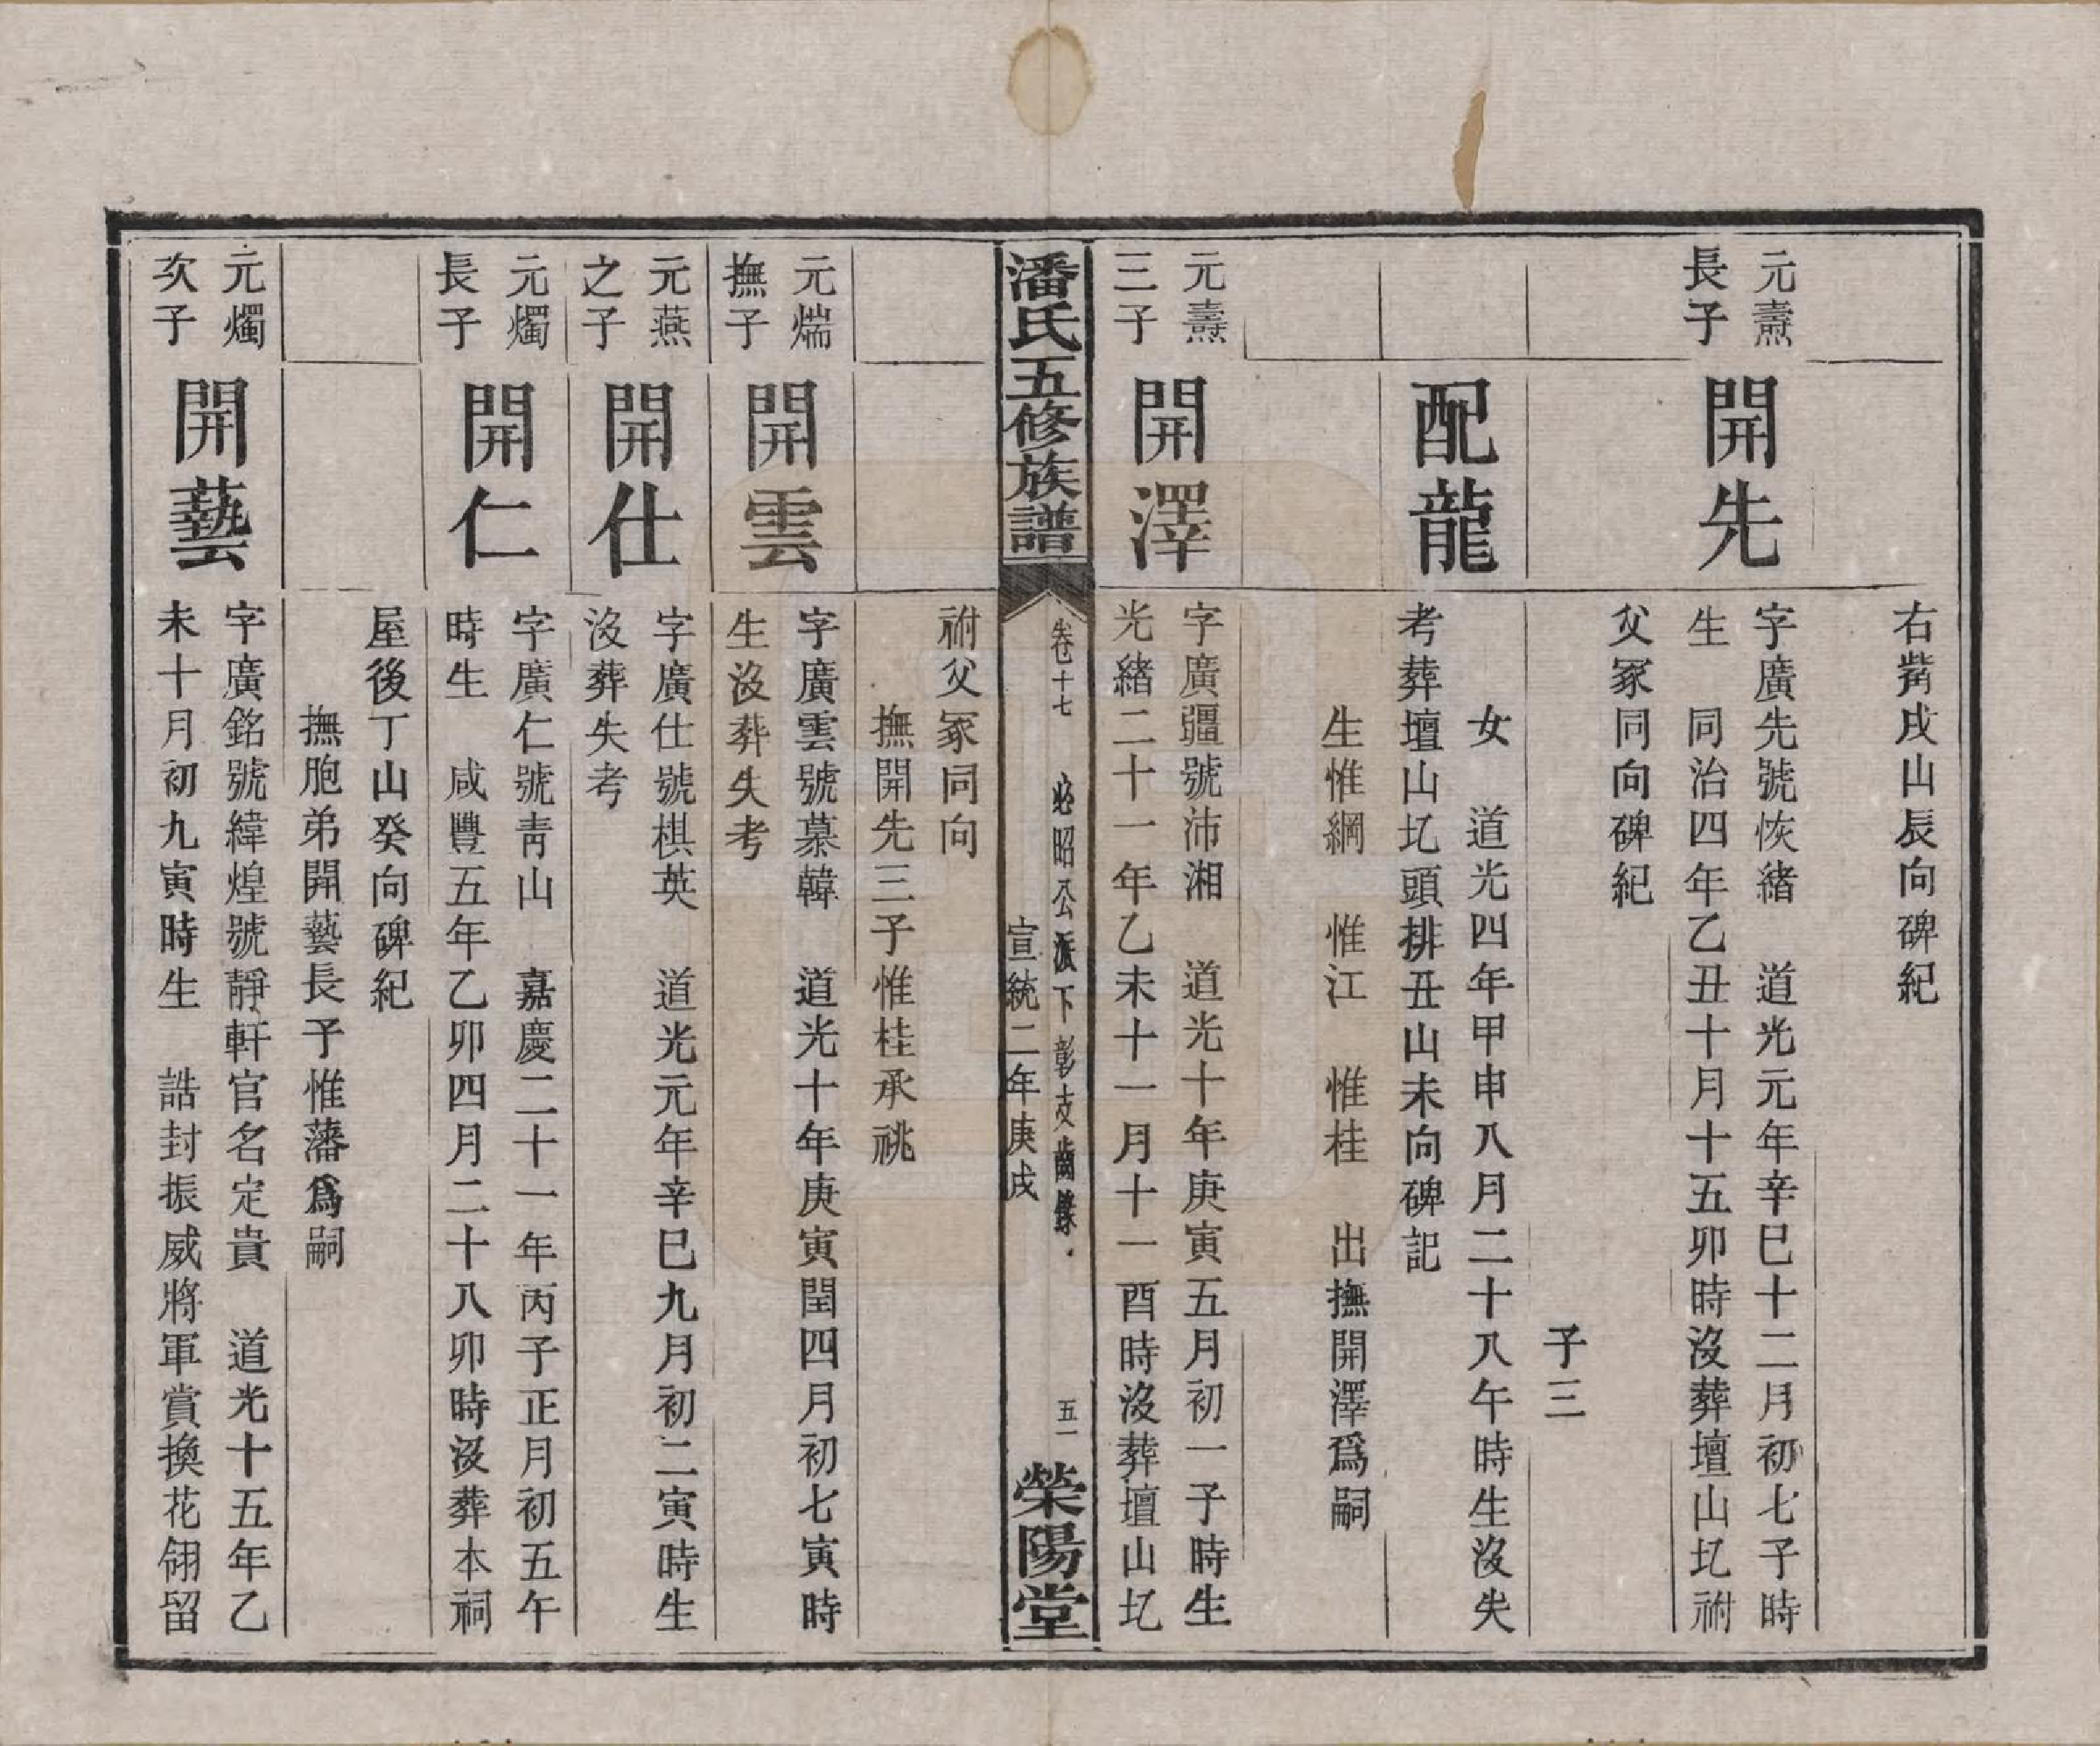 右觜戌山辰向碑紀
元燾
長子
開先
字廣先號恢緒　道光元年辛巳十二月初七子時
生　同治四年乙丑十月十五卯時沒葬壇山圠祔
父冢同向碑紀
子三
配龍
女　道光四年甲申八月二十八午時生沒失
考葬壇山圠頭排丑山未向碑記
生惟綱　惟江　惟桂　出撫開澤爲嗣
元燾
三子
開澤
字廣疆號沛湘　道光十年庚寅五月初一子時生
光緒二十一年乙未十一月十一酉時沒葬壇山圠
潘氏五修族譜
卷十七　必昭公派下彰支齒錄
宣統二年庚戌
五一
榮陽堂
祔父冢同向
撫開先三子惟桂承祧
元煓
撫子
開雲
字廣雲號慕韓　道光十年庚寅閏四月初七寅時
生沒葬失考
元燕
之子
開仕
字廣仕號棋英　道光元年辛巳九月初二寅時生
沒葬失考
元燭
長子
開仁
字廣仁號靑山　嘉慶二十一年丙子正月初五午
時生　咸豐五年乙卯四月二十八卯時沒葬本祠
屋後丁山癸向碑紀
撫胞弟開藝長子惟藩爲嗣
元燭
次子
開藝
字廣銘號緯煌號靜軒官名定貴　道光十五年乙
未十月初九寅時生　誥封振威將軍賞換花翎留